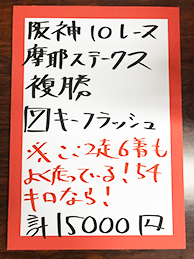 阪神10レース
摩耶ステークス
複勝
図キーフラッシュ
※ここ2走6着も
よく走っている!54
キロなら!
計15000円